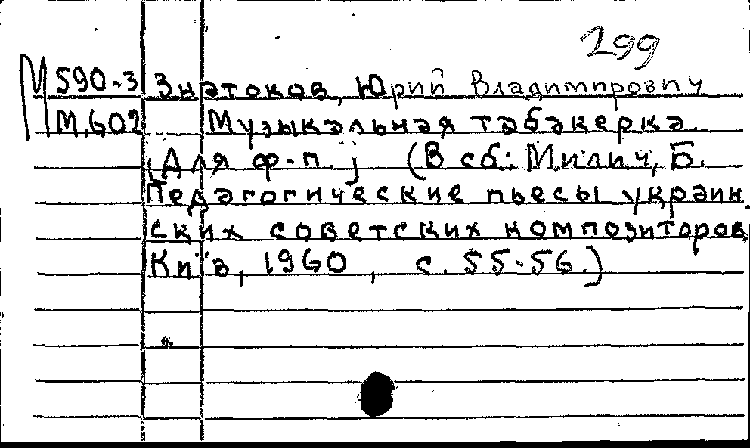 299
М590-3 Знатоков, Юрий Владимирович
М.602 Музыкальная табакерка
[Для ф-п.] (В сб: Милич, Б.
Педагогические пьесы украин
ских советских композиторов
Київ, 1960, с. 55-56.)